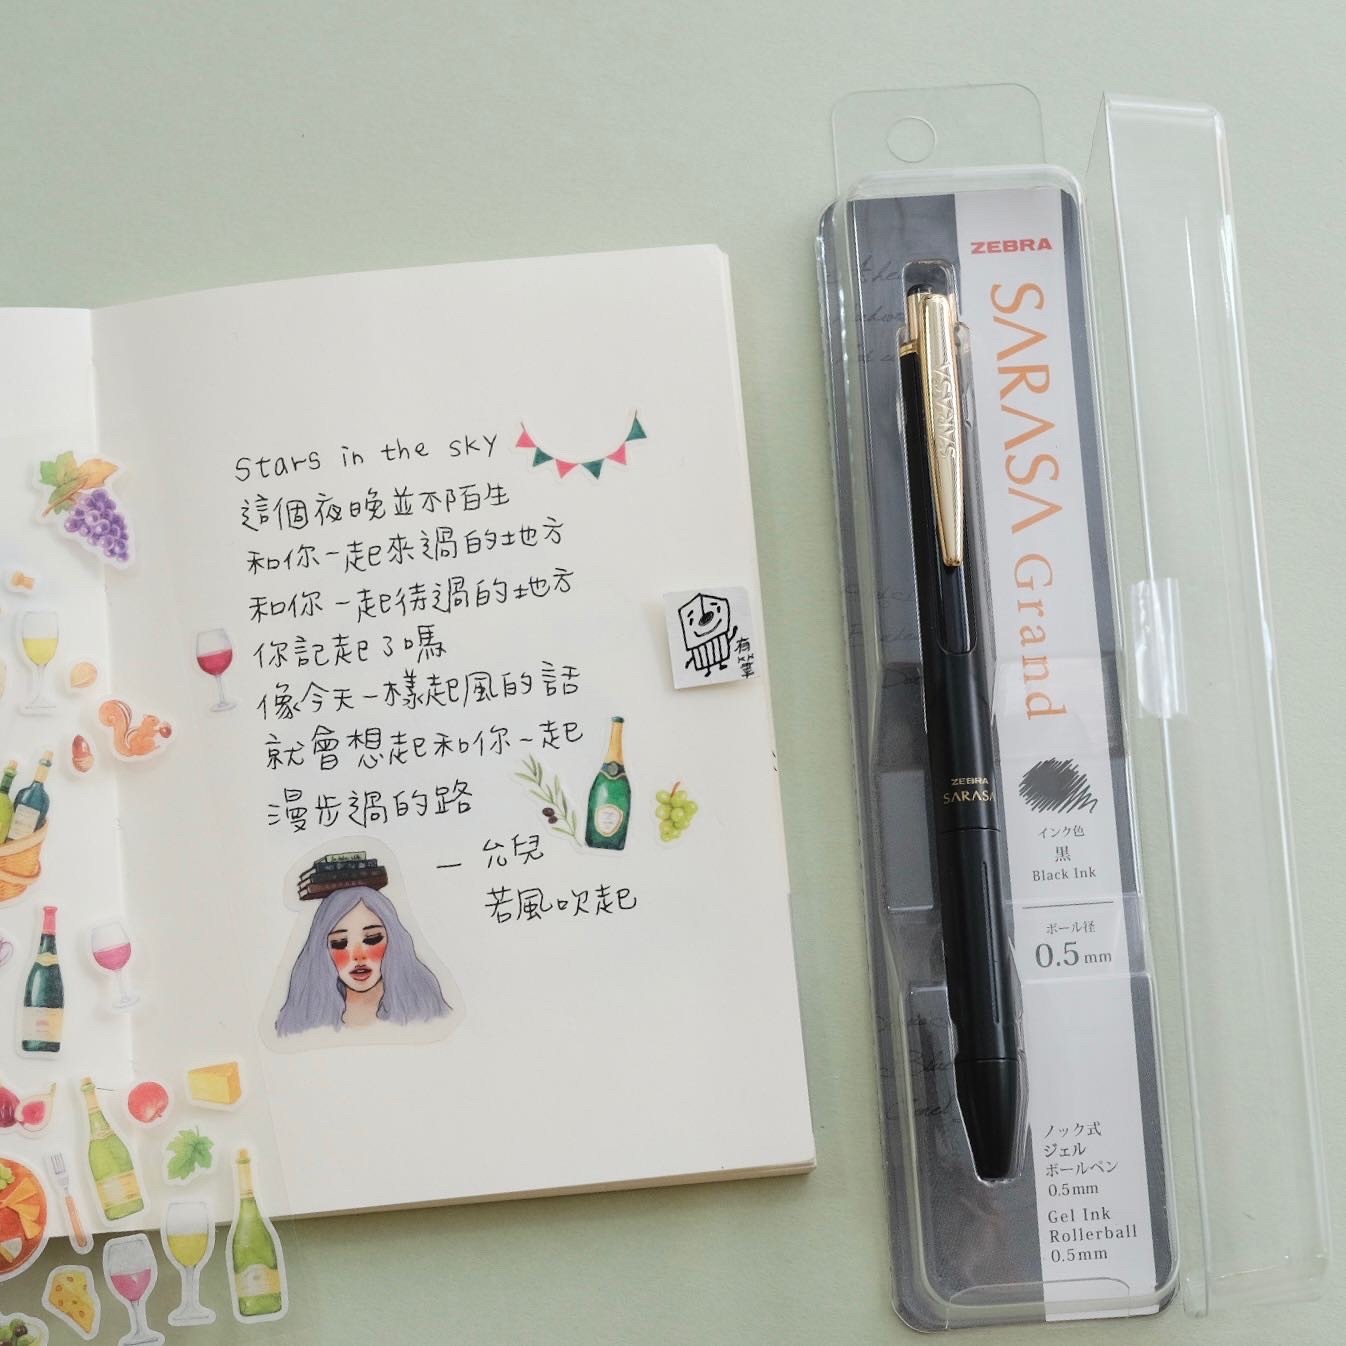 Stars in the sky
這個夜晚並不陌生
和你一起來過的地方
和你一起待過的地方
你記起了嗎
像今天一樣起風的話
就會想起和你一起
漫步過的路
— 允兒
若風吹起
ZEBRA
SARASA Grand
SARASA
ZEBRA
SARASA
インク色
黒
Black Ink
ボール径
0.5mm
ノック式
ジェル
ボールペン
0.5mm
Gel Ink
Rollerball
0.5mm